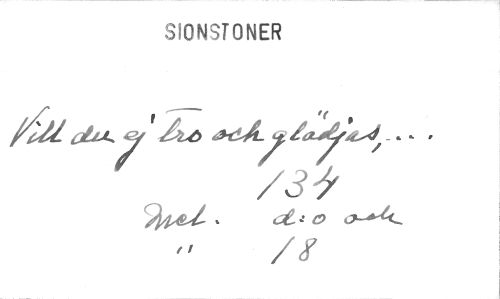 SIONSTONER
Vill du ej tro och glädjas,...
134
Mel. d:o och
" 18